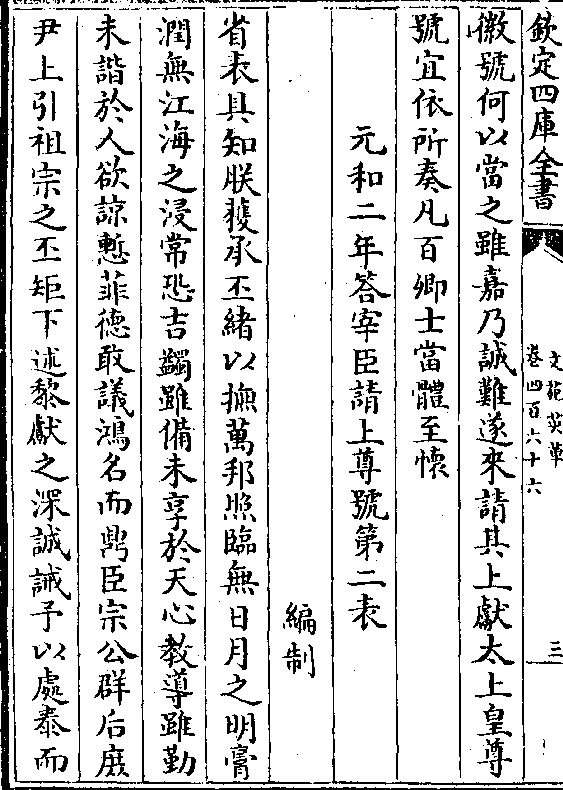 欽定四庫全書
文苑英華
卷四百六十六
三
徽號何以當之雖嘉乃誠難遂來請其上獻太上皇尊
號宜依所奏凡百卿士當體至懷
元和二年答宰臣請上尊號第二表
編制
省表具知朕獲承丕緒以撫萬邦照臨無日月之明膏
潤無江海之浸常恐吉蠲雖備未享於天心教導雖勤
未諧於人欲諒慙菲德敢議鴻名而鼎臣宗公群后庶
尹上引祖宗之丕矩下述黎獻之深誠誡予以處泰而